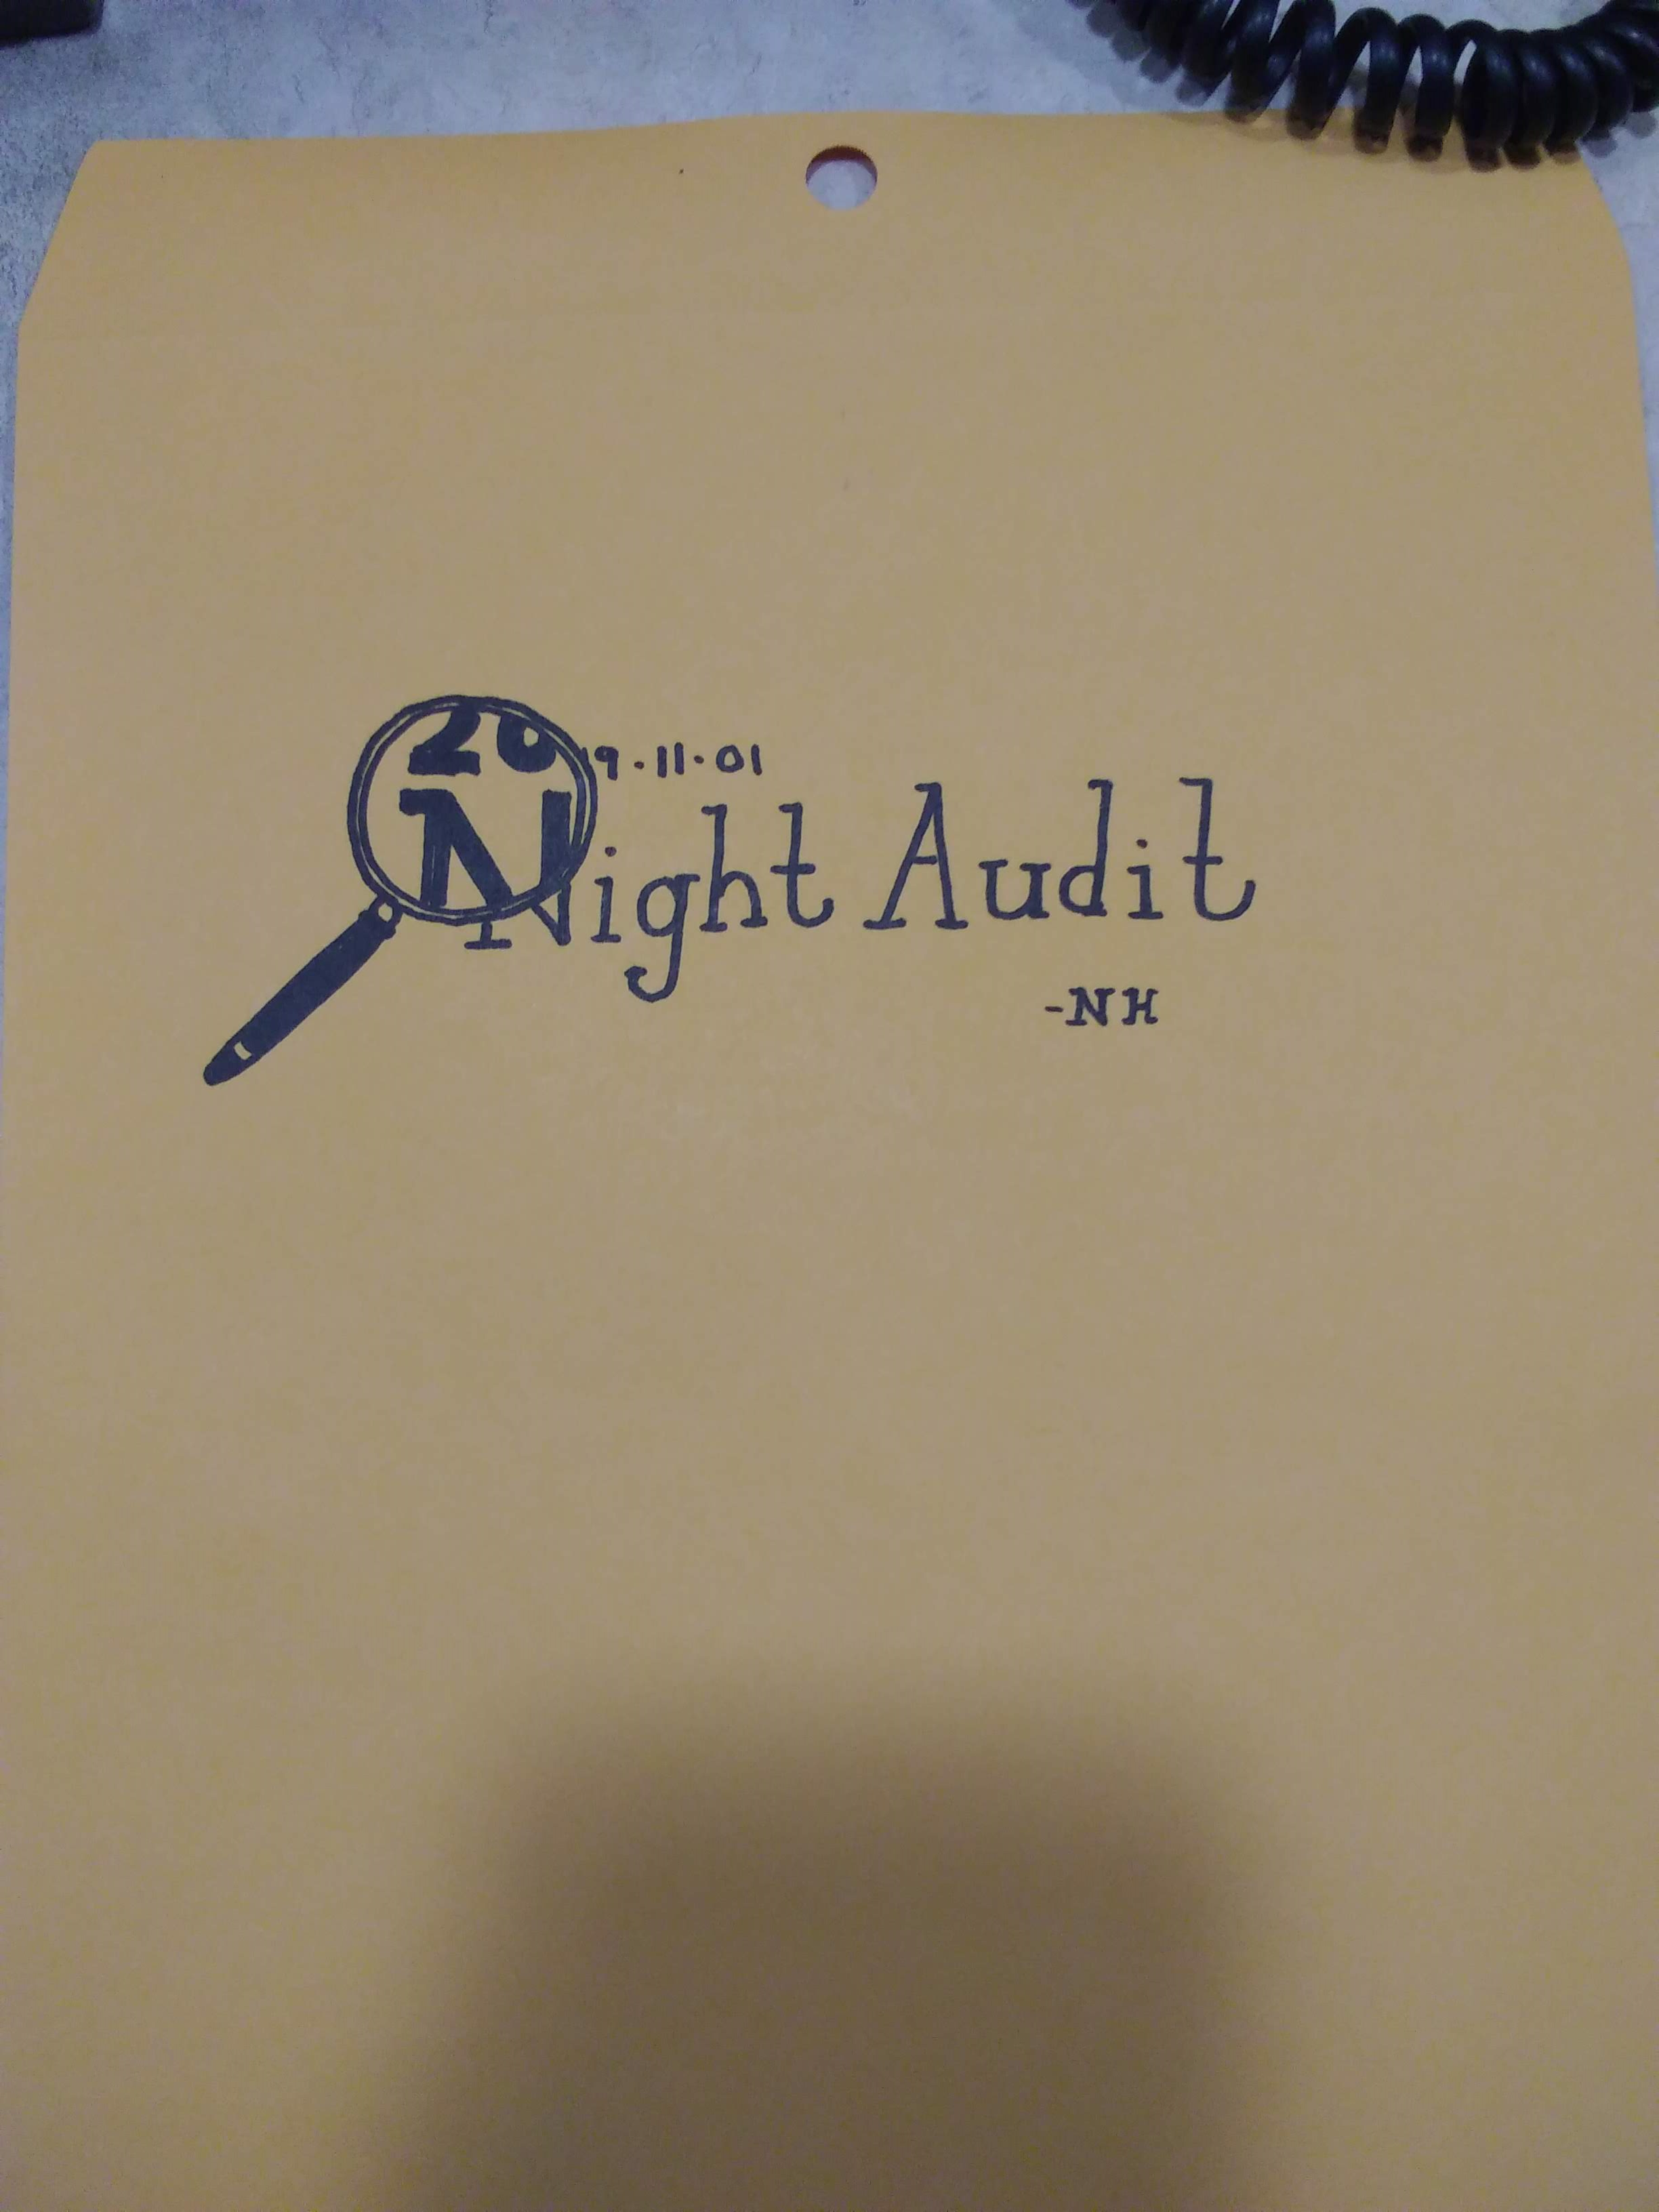 2019.11.01
Night Audit
-NH